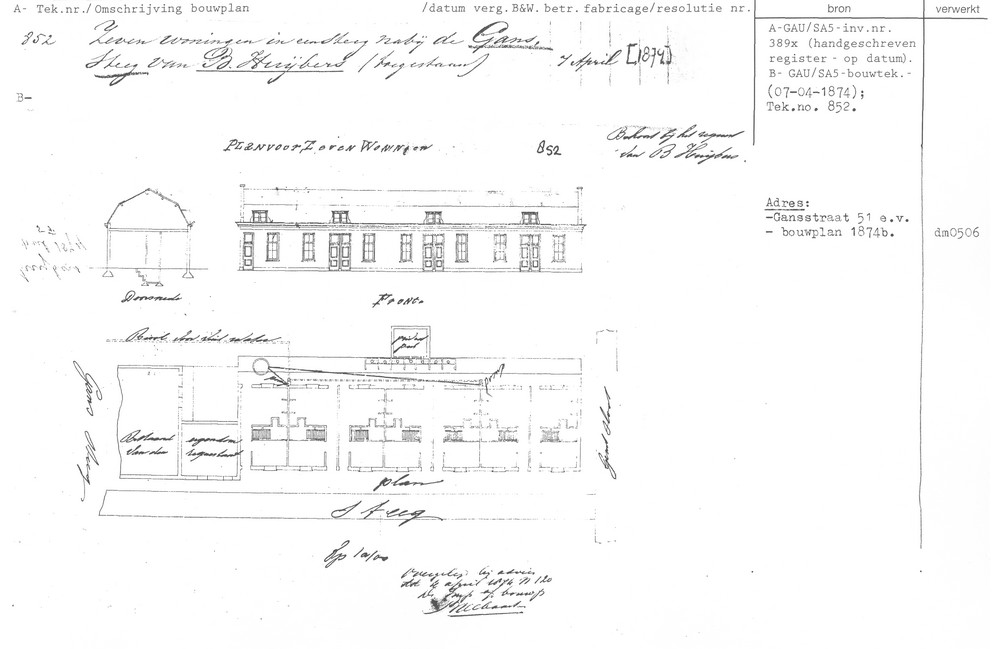 A- Tek.nr./Omschrijving bouwplan /datum verg. B&W. betr. fabricage/resolutie nr. bron verwerkt
852 Zeven woningen in een steeg nabij de Gans.
Steeg van B. Huijbers (toegestaan) 7 April [1874]
A-GAU/SA5-inv.nr.
389x (handgeschreven
register - op datum).
B- GAU/SA5-bouwtek.-
(07-04-1874);
Tek.no. 852.
B-
Plan voor Zeven Woningen 852
Behoort bij het request
van B Huijbers.
Adres:
-Gansstraat 51 e.v.
- bouwplan 1874b. dm0506
Doorsnede
Front.
Riool voor
put
pomp
Gans Steeg
Bestaand eigendom
van den requestrant
plan
Steeg
Op 1 a 100
bij advies
dd 4 april 1874 N 120